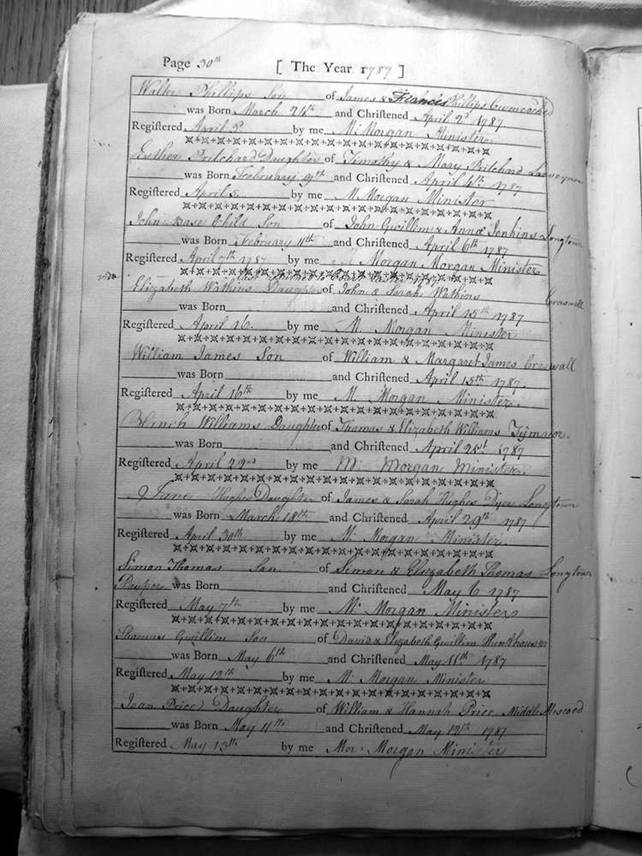 Page 30th [ The Year 1787 ]
Walter Phillips Son of James & Frances Phillips
was Born March 24th and Chriſtened April 2d 1787
Regiſtered April 2d by me M: Morgan Miniſter
Esther Pritchard Daughter of Timothy & Mary Pritchard
was Born February 9th and Chriſtened April 4th 1787
Regiſtered April 5 by me M Morgan Minister
John Base Child Son of John Gwillim & Anna Jenkins Longtown
was Born February 11th and Chriſtened April 6th 1787
Regiſtered April 7th 1787 by me M Morgan Morgan Minister
Elizabeth Watkins Daughter of John & Sarah Watkins Craswall
was Born and Chriſtened April 15th 1787
Regiſtered April 16 by me M. Morgan Minister
William James Son of William & Margaret James Craswall
was Born and Chriſtened April 15th 1787
Regiſtered April 16th by me M. Morgan Minister
Blench Williams Daughter of Thomas & Elizabeth Williams
was Born and Chriſtened April 21st 1787
Regiſtered April 22nd by me M: Morgan Minister
Hughes Daughter of James & Sarah Hughes Dyer Longtown
was Born March 18th and Chriſtened April 29th 1787
Regiſtered April 30th by me M: Morgan Minister
Simon Thomas Son of Simon & Elizabeth Thomas Longtown
Pauper was Born and Chriſtened May 6 1787
Regiſtered May 7th by me M: Morgan Minister
Thomas Gwillim Son of David & Elizabeth Gwillim
was Born May 6th and Chriſtened May 11th 1787
Regiſtered May 12th by me M: Morgan Minister
Joan Price Daughter of William & Hannah Price Middle Mescoed
was Born May 11th and Chriſtened May 12th 1787
Regiſtered May 13th by me Mor: Morgan Minister